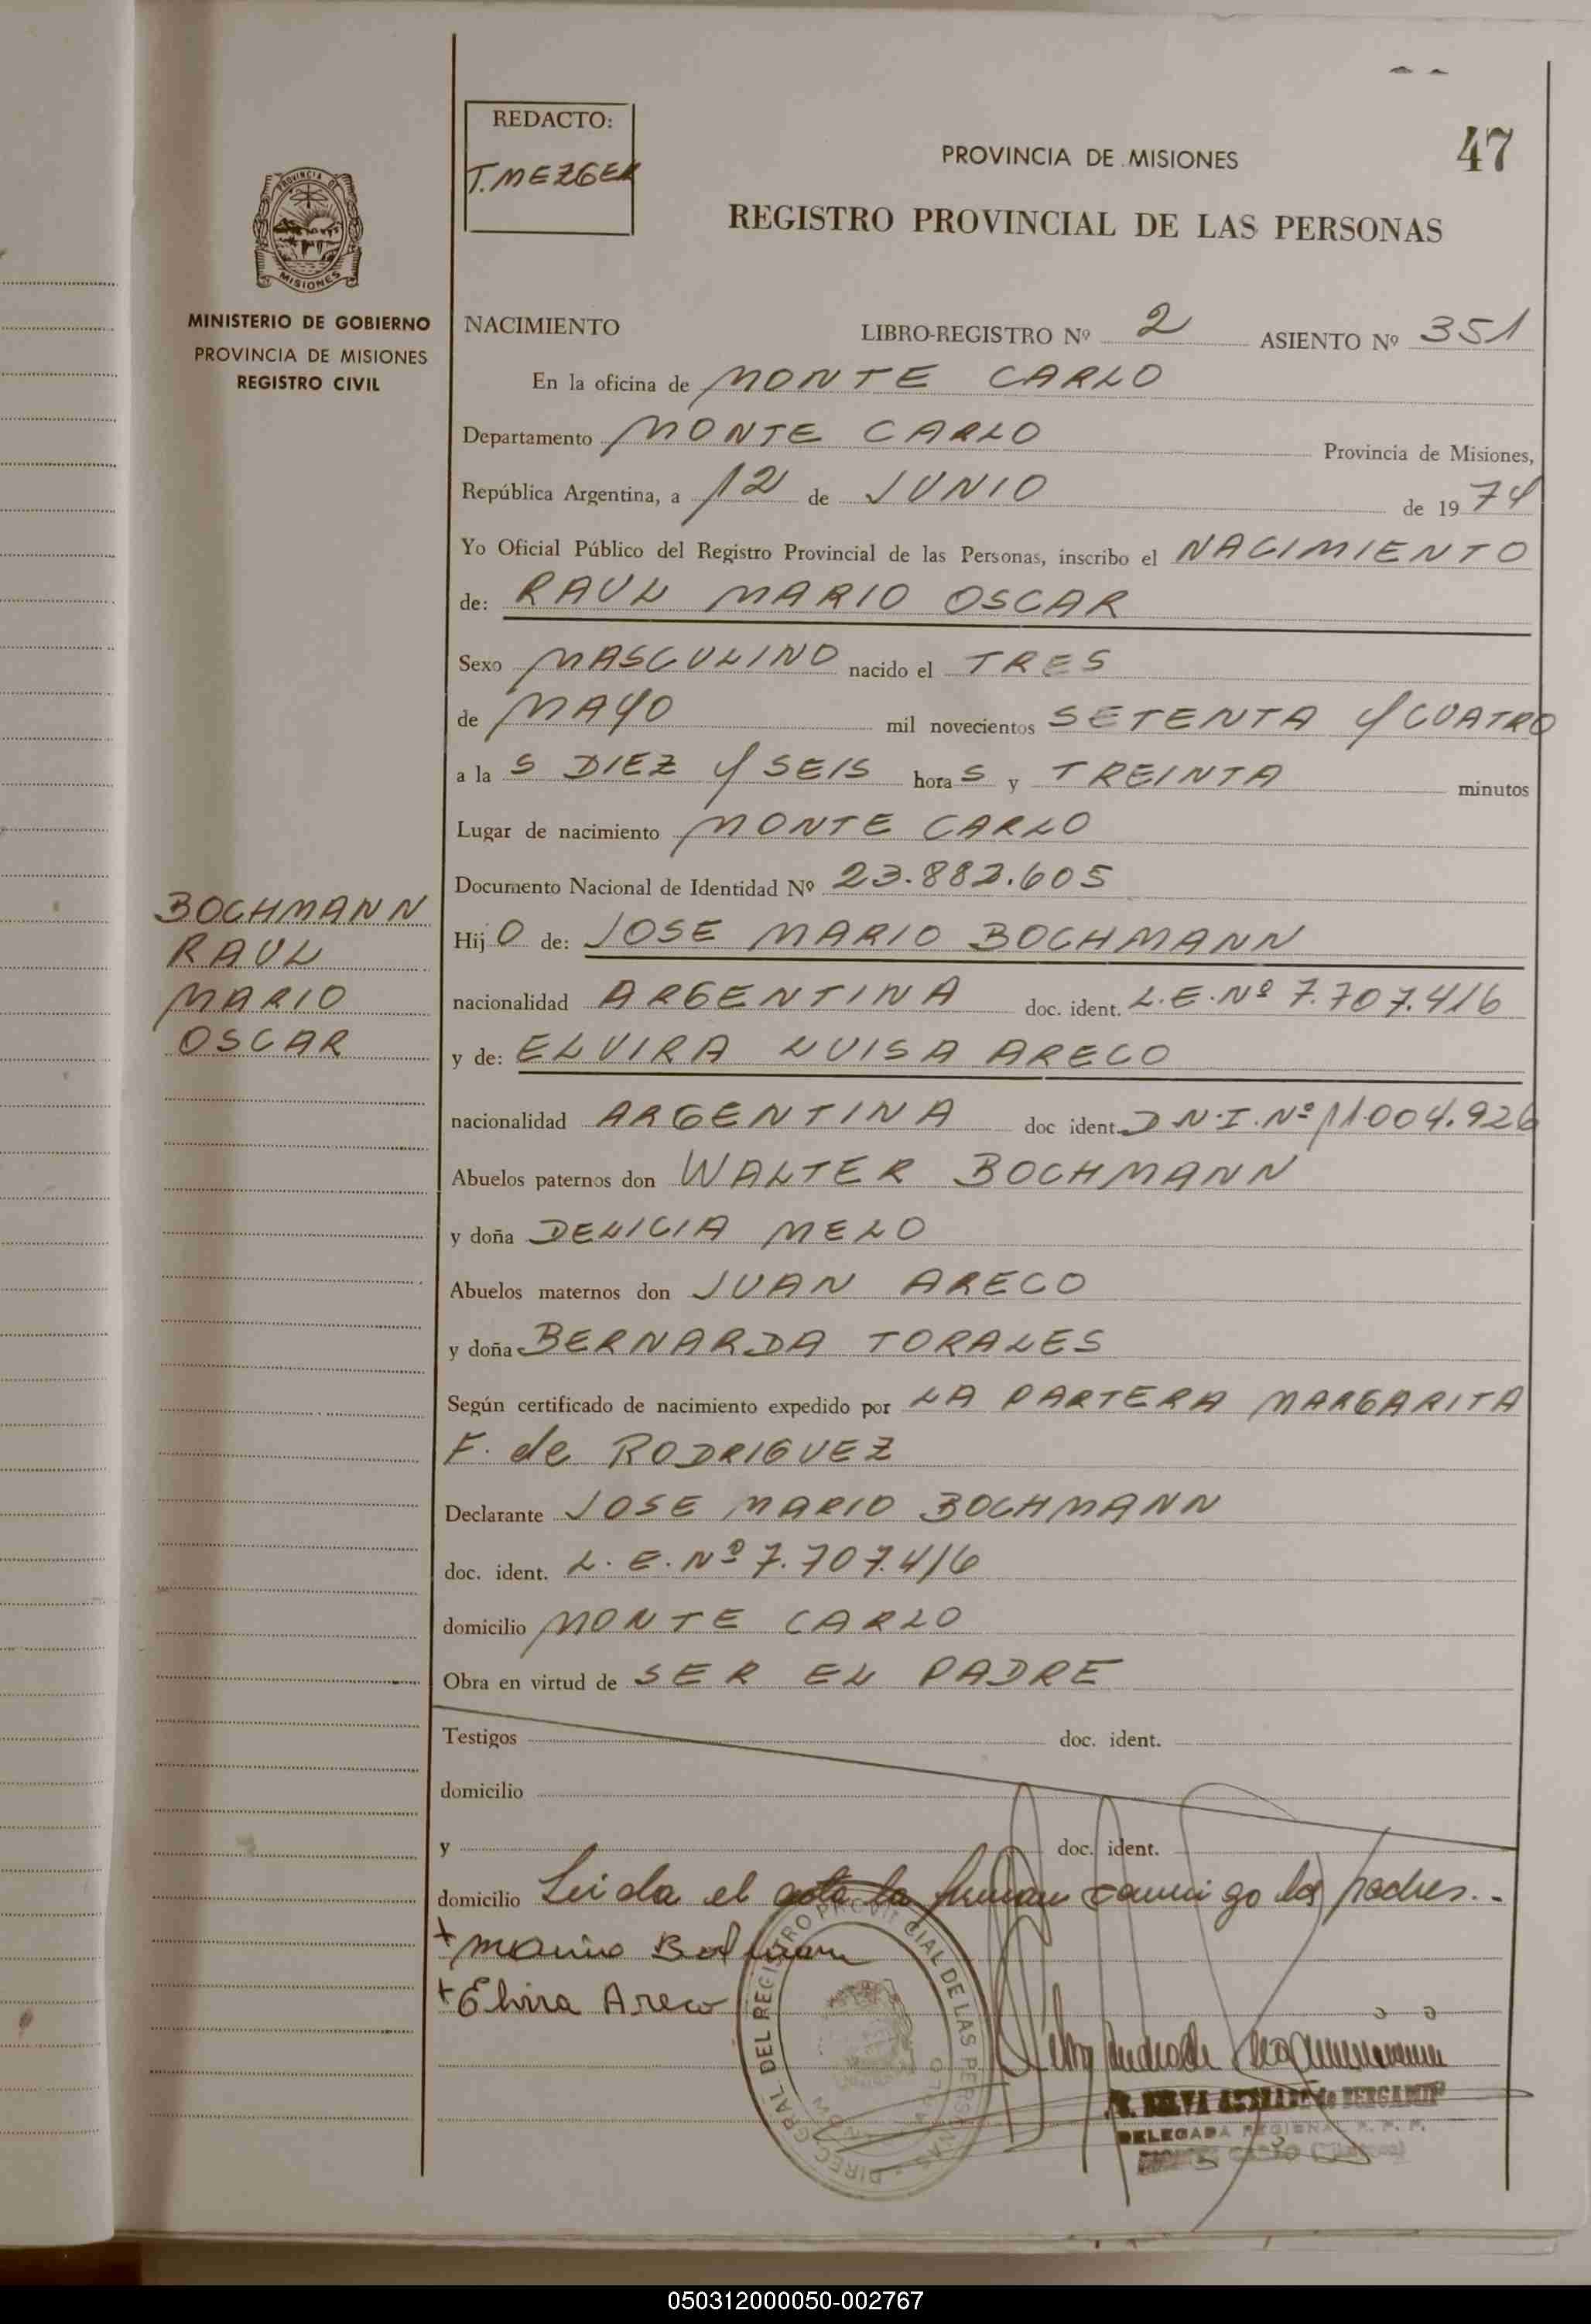 REDACTO:
T. MEZGER
PROVINCIA DE MISIONES
47
REGISTRO PROVINCIAL DE LAS PERSONAS
PROVINCIA DE
MISIONES
MINISTERIO DE GOBIERNO
PROVINCIA DE MISIONES
REGISTRO CIVIL
NACIMIENTO LIBRO-REGISTRO Nº 2 ASIENTO Nº 351
En la oficina de MONTE CARLO
Departamento MONTE CARLO Provincia de Misiones,
República Argentina, a 12 de JUNIO de 1974
Yo Oficial Público del Registro Provincial de las Personas, inscribo el NACIMIENTO
de: RAUL MARIO OSCAR
Sexo MASCULINO nacido el TRES
de MAYO mil novecientos SETENTA Y CUATRO
a la S DIEZ Y SEIS hora S y TREINTA minutos
Lugar de nacimiento MONTE CARLO
Documento Nacional de Identidad Nº 23.883.605
BOCHMANN
RAUL
MARIO
OSCAR
Hij O de: JOSE MARIO BOCHMANN
nacionalidad ARGENTINA doc. ident. L.E.Nº 7.707.416
y de: ELVIRA LUISA ARECO
nacionalidad ARGENTINA doc ident. D N.I.Nº 11.004.926
Abuelos paternos don WALTER BOCHMANN
y doña DELICIA MELO
Abuelos maternos don JUAN ARECO
y doña BERNARDA TORALES
Según certificado de nacimiento expedido por LA PARTERA MARGARITA
F. de RODRIGUEZ
Declarante JOSE MARIO BOCHMANN
doc. ident. L.E.Nº 7.707.416
domicilio MONTE CARLO
Obra en virtud de SER EL PADRE
Testigos doc. ident.
domicilio
y doc. ident.
domicilio Leida el acta la firman conmigo los padres.-
+ Mario
+ Elvira Areco
DIREC. GRAL. DEL REGISTRO PROVINCIAL DE LAS PERSONAS
DELEGADA REGIONAL R. P. P.
050312000050-002767